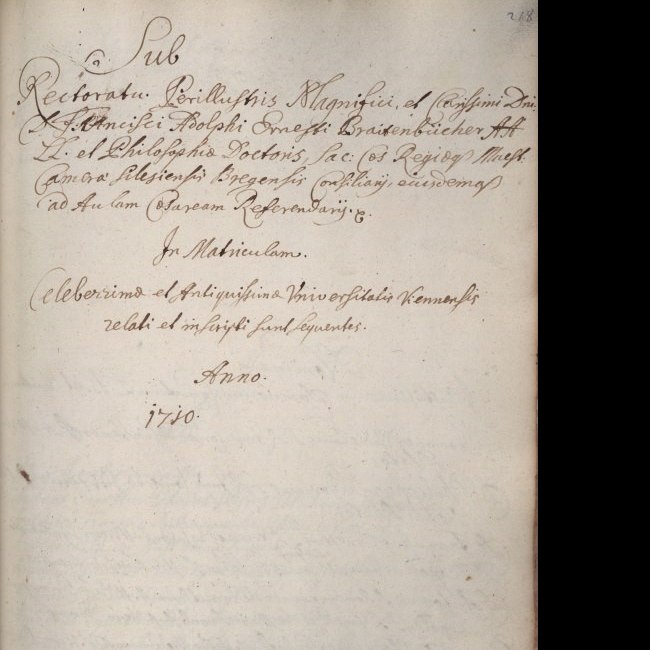 218
Sub
Rectoratu. Perillustris Magnifici, et Clarissimi Dni.
D. Francisci Adolphi Ernesti Braitenbücher AA
LL et Philosophiæ Doctoris, Sac: Cæs Regiæq Maest.
Cameræ Silesiensis Bregensis Consiliarij, eiusdemq
ad Aulam Cæsaream Referendarij.
In Matriculam.
Celeberrimæ et Antiquissimæ Universitatis Viennensis
relati et inscripti sunt sequentes.
Anno.
1710.